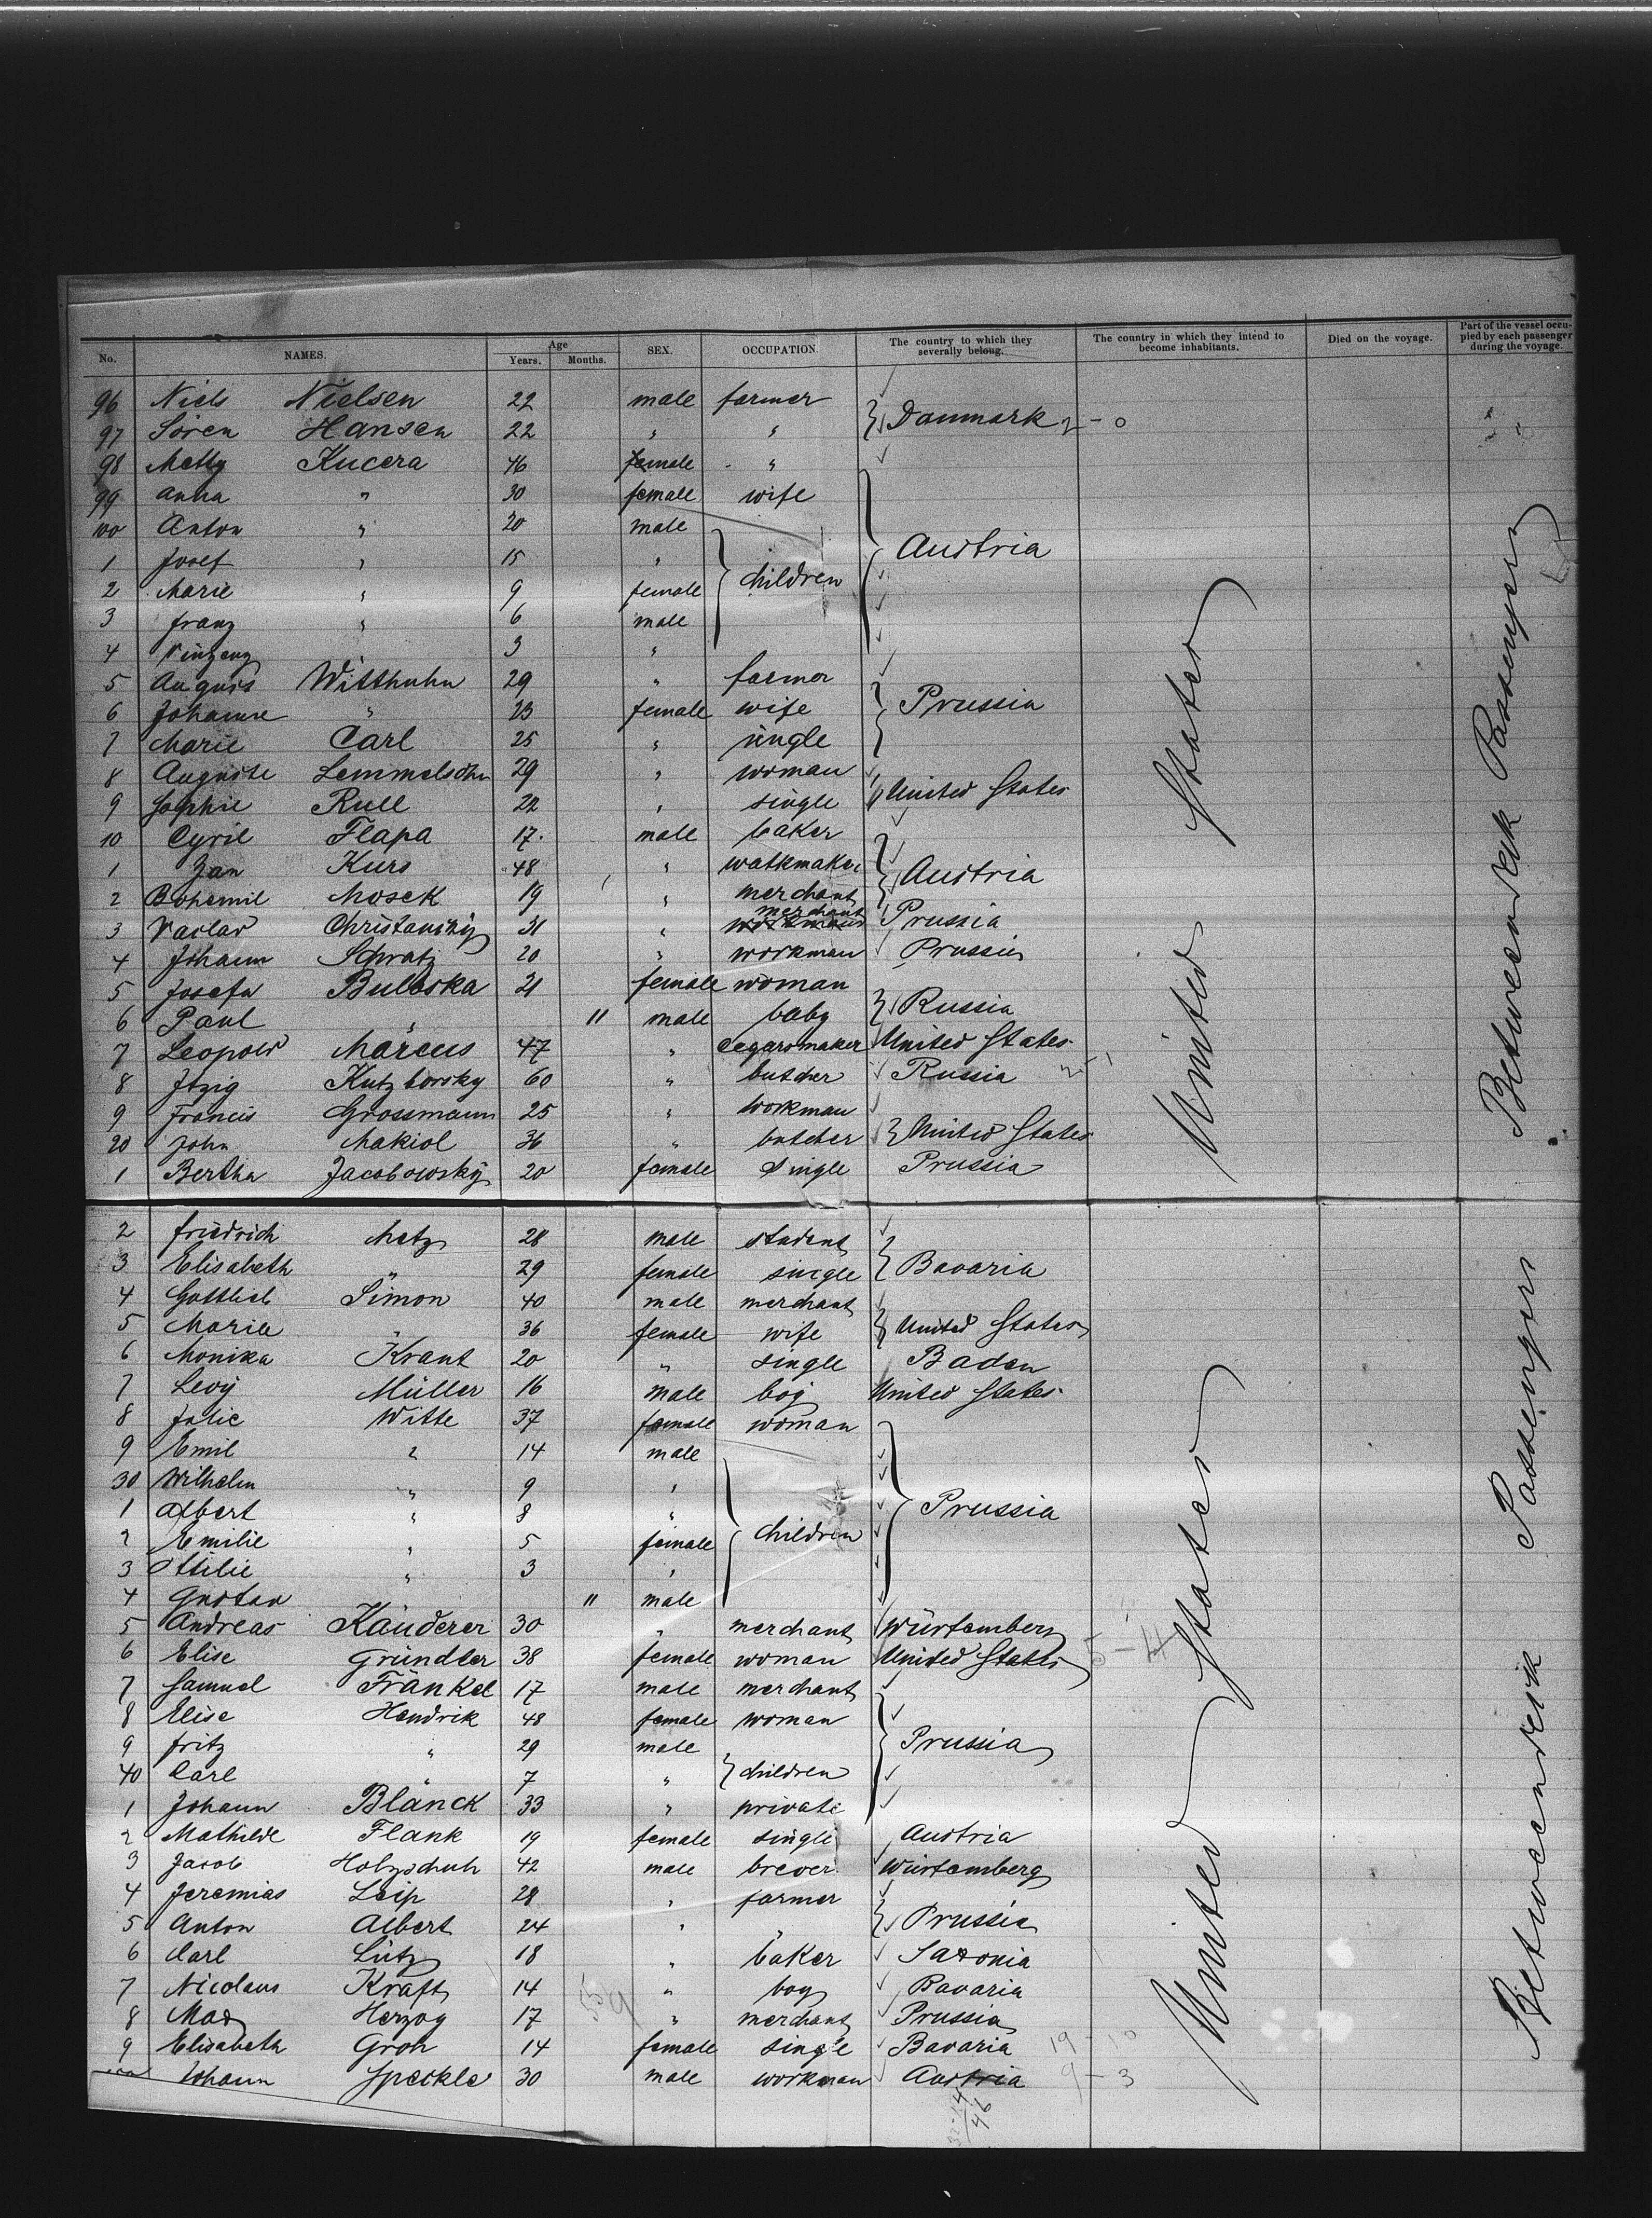 No. NAMES. Age Years. Months. SEX. OCCUPATION. The country to which they severally belong. The country in which they intend to become inhabitants. Died on the voyage. Part of the vessel occupied by each passenger during the voyage.
96 Niels Nielsen 22 male farmer
97 Sören Hansen 22 " " } Danmark 2-0
98 Metty Kucera 46 female "
99 Anna " 30 female wife
100 Anton " 20 male
1 Josef " 15 " Austria
2 Marie " 9 female children
3 Franz " 6 male
4 Vinzenz " 3 "
5 August Witthuhn 29 " farmer
6 Johanne " 23 female wife } Prussia
7 Marie Carl 25 " single
8 Auguste Lemmelsohn 29 " woman
9 Sophie Rull 22 " single United States
10 Cyril Flapa 17 male baker
1 Jan Kurs 48 " watkmaker } Austria
2 Bohemil Mosek 19 " merchant
3 Vaclav Christanský 31 " merchant Prussia
4 Johann Schratz 20 " workman Prussia
5 Josefa Bulbska 21 female woman
6 Paul " 11 male baby } Russia
7 Leopold Marcus 47 " cegarsmaker United States
8 Itzig Kutzborsky 60 " butcher Russia
9 Francis Grossmann 25 " workman
20 John Makiol 36 " butcher } United States
1 Bertha Jacobowský 20 female single Prussia
United States
Betweendeck Passengers
2 Friedrich Metz 28 male student
3 Elisabeth " 29 female single } Bavaria
4 Gottlieb Simon 40 male merchant
5 Maria " 36 female wife } United States
6 Monika Krant 20 " single Baden
7 Levy Müller 16 male boy United States
8 Julie Witte 37 female woman
9 Emil " 14 male
30 Wilhelm " 9 "
1 Albert " 8 " Prussia
2 Emilie " 5 female children
3 Ottilie " 3 "
4 Gustav 11 male
5 Andreas Käuderer 30 " merchant Würtemberg
6 Elise Gründler 38 female woman United States
7 Samuel Fränkel 17 male merchant
8 Elise Hendrik 48 female woman
9 Fritz " 29 male } Prussia
40 Carl " 7 " } children
1 Johann Blanck 33 " private
2 Mathilde Flank 19 female single Austria
3 Jacob Holzschuh 42 male brever Würtemberg
4 Jeremias Leip 28 " farmer
5 Anton Albert 24 " " } Prussia
6 Carl Lutz 18 " baker Saxonia
7 Nicolaus Kraft 14 " boy Bavaria
8 Max Herzog 17 " merchant Prussia
9 Elisabeth Groh 14 female single Bavaria 19-10
Johann Speckle 30 male workman Austria 9-3
United States
Betweendeck Passengers